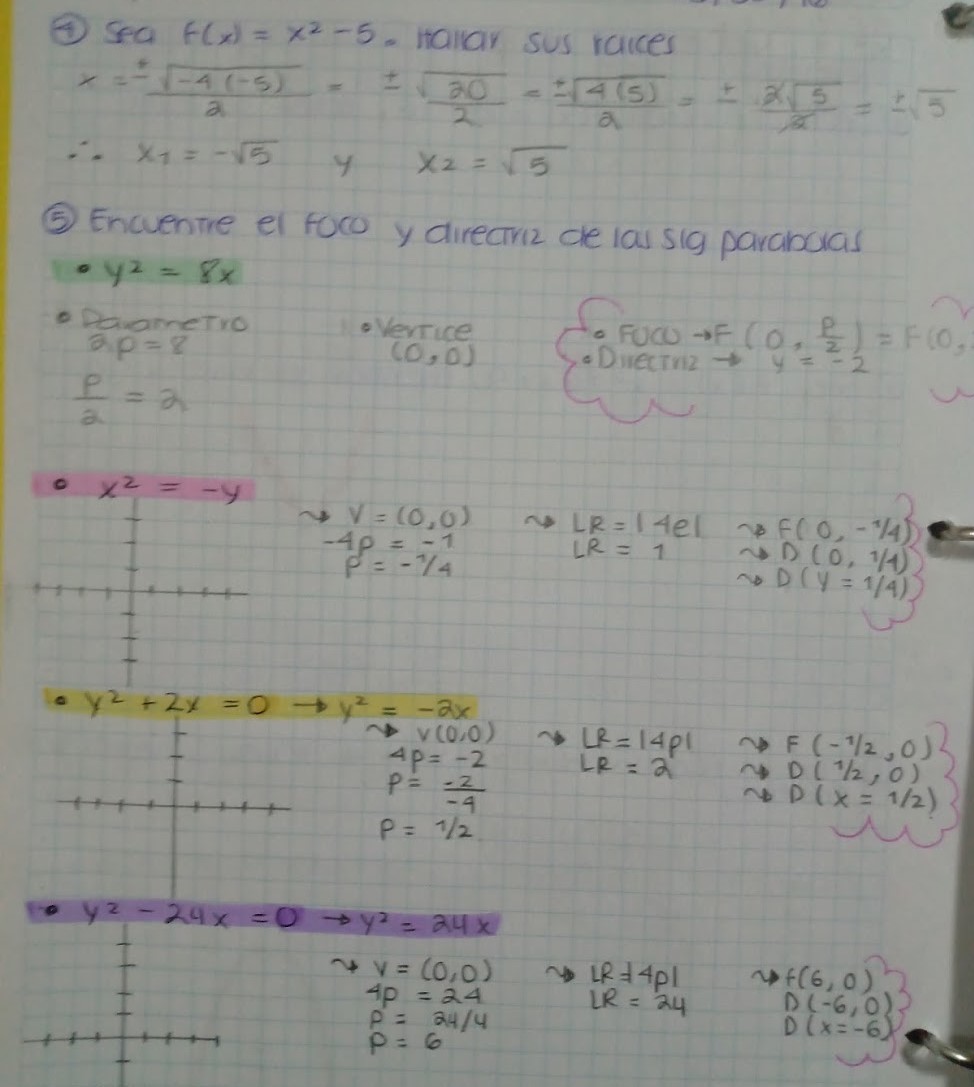 ④ Sea f(x) = x² - 5. Hallar sus raices
x = ± √-4(-5) / 2 = ± √20 / 2 = ± √4(5) / 2 = ± 2√5 / 2 = ± √5
∴ x₁ = -√5 y x₂ = √5
⑤ Encuentre el foco y directriz de las sig parabolas
• y² = 8x
• Parametro
2p = 8
p/2 = 2
• Vertice
(0,0)
• Foco → F (0, p/2) = F(0,
• Directriz → y = -2
• x² = -y
V = (0,0)
-4p = -1
p = -1/4
LR = |4e|
LR = 1
F(0, -1/4)
D(0, 1/4)
D(y = 1/4)
• y² + 2x = 0 → y² = -2x
V(0,0)
4p = -2
p = -2/-4
p = 1/2
LR = |4p|
LR = 2
F(-1/2, 0)
D(1/2, 0)
D(x = 1/2)
• y² - 24x = 0 → y² = 24x
V = (0,0)
4p = 24
p = 24/4
p = 6
LR = |4p|
LR = 24
f(6, 0)
D(-6, 0)
D(x = -6)